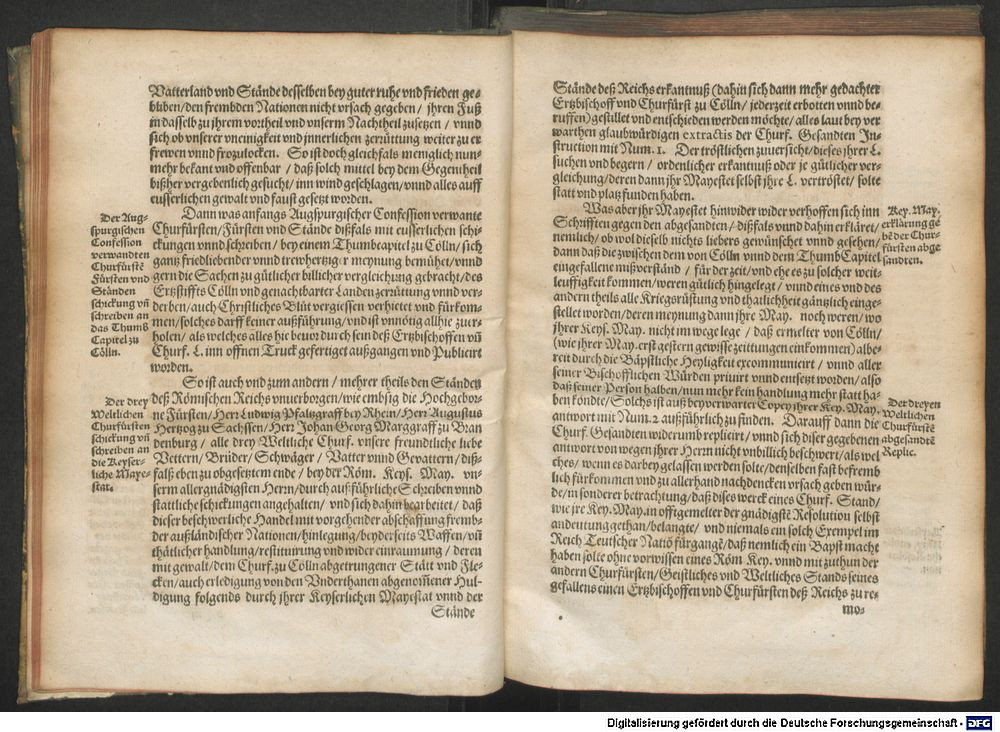 Vatterland vnd Stände desselben bey guter ruhe vnd frieden ge-
bliben/den frembden Nationen nicht vrsach gegeben / jhren Fuß
in dasselb zu jhrem vortheil vnd vnserm Nachtheil zusetzen / vnnd
sich ob vnserer vneinigkeit vnd jnnerlichen zerrüttung weiter zu er-
frewen vnnd frozulocken. So ist doch gleichfals meniglich nun-
mehr bekant vnd offenbar / daß solch mittel bey dem Gegentheil
bißher vergebenlich gesucht/ inn wind geschlagen/vnnd alles auff
eusserlichen gewalt vnd faust gesetzt worden.
Dann was anfangs Augspurgischer Confession verwante
Churfürsten/Fürsten vnd Stände dißfals mit eusserlichen schi-
ckungen vnnd schreiben / bey einem Thumbcapitel zu Cöln/ sich
gantz friedliebender vnnd trewhertziger meynung bemühet/vnnd
gern die Sachen zu gütlicher billicher vergleichung gebracht/des
Ertzstiffts Cölln vnd genachtbarter Landen zerrüttung vnnd ver-
derben/auch Christliches Blüt vergiessen verhietet vnd fürkom-
men/solches darff keiner außführung/vnd ist vnnötig allhie zuer-
holen/ als welches alles hie beuor durch sein deß Ertzbischoffen vñ
Churf. L. inn offnen Truck gefertiget außgangen vnd Publicirt
worden.
So ist auch vnd zum andern / mehrer theils den Ständen
deß Römischen Reichs vnuerborgen/wie embsig die Hochgebor-
ne Fürsten/ Herr Ludwig Pfaltzgraff bey Rhein/Herr Augustus
Hertzog zu Sachssen/ Herr Johan Georg Marggraff zu Bran
denburg / alle drey Weltliche Churf. vnsere freundtliche liebe
Vettern/ Brüder/ Schwäger / Vatter vnnd Gevattern/ diß-
falß eben zu obgesetztem ende / bey der Röm. Keys. May. vn-
serm allergnädigsten Herrn/durch außführliche Schreiben vnnd
stattliche schickungen angehalten/ vnd sich dahin bearbeitet / daß
dieser beschwerliche Handel mit vorgehender abschaffung fremb-
der außländischer Nationen/hinlegung/beyderseits Waffen/vñ
thätlicher handlung/restituirung vnd wider einraumung / deren
mit gewalt/dem Churf. zu Cölln abgetrungener Stätt vnd Fle-
cken/auch erledigung von den Vnderthanen abgenom̃ener Hul-
digung folgends durch jhrer Keyserlichen Mayestat vnnd der
Stände
Der Aug-
spurgischen
Confession
verwandten
Churfürstē
Fürsten vnd
Ständen
schickung vñ
schreiben an
das Thumb
Capitel zu
Cöln.
Der drey
Weltlichen
Churfürsten
schickung vñ
schreiben an
die Keyser-
liche Maye-
stat.
Stände deß Reichs erkantnuß (dahin sich dann mehr gedachter
Ertzbischoff vnd Churfürst zu Cölln/ jederzeit erbotten vnnd be-
ruffen) gestillet vnd entschieden werden möchte/alles laut bey ver
warthen glaubwürdigen extractis der Churf. Gesandten In-
struction mit Num. 1. Der tröstlichen zuuersicht/dieses jhrer L.
suchen vnd begern / ordenlicher erkantnuß oder je gütlicher ver-
gleichung/deren dann jhr Mayestet selbst jhre L. vertröstet/ solte
statt vnd platz funden haben.
Was aber jhr Mayestet hinwider wider verhoffen sich inn
Schrifften gegen den abgesandten/ dißfals vnnd dahin erkläret/
nemlich/ ob wol dieselb nichts liebers gewünschet vnnd gesehen/
dann daß die zwischen dem von Cölln vnnd dem ThumbCapitel
eingefallene mißverständ / für der zeit/vnd ehe es zu solcher weit-
leuffigkeit kommen/weren gütlich hingelegt / vnnd eines vnd des
andern theils alle Kriegsrüstung vnd thatlichheit gäntzlich einge-
stellet worden/deren meynung dann jhre May. noch weren/ wo
jhrer Keys. May. nicht im wege lege / daß ermelter von Cölln/
(wie jhrer May. erst gestern gewisse zeittungen einkommen) albe-
reit durch die Bäpstliche Heyligkeit excommunicirt / vnnd aller
seiner Bischofflichen Würden priuirt vnnd entsetzt worden/ also
daß seiner Person halben/nun mehr kein handlung mehr statt ha-
ben köndte/Solchs ist auß bey verwarter Copey jhrer Key. May.
antwort mit Num. 2 außführlich zu finden. Darauff dann die
Churf. Gesandten widerumb replicirt/ vnnd sich diser gegebenen
antwort von wegen jhrer Herrn nicht vnbillich beschwert/als wel
ches/ wenn es darbey gelassen werden solte/denselben fast befremb
lich fürkommen vnd zu allerhand nachdencken vrsach geben wür-
de/in sonderer betrachtung/daß dises werck eines Churf. Stand/
wie jre Key. May. in offtgemelter der gnädigste Resolution selbst
andeutung gethan/belangte/ vnd niemals ein solch Exempel im
Reich Teutscher Natiō fürgangē/daß nemlich ein Bapst macht
haben solte ohne vorwissen eines Röm Key. vnnd mit zuthun der
andern Churfürsten/Geistliches vnd Weltliches Stands seines
gefallens einen Ertzbischoffen vnd Churfürsten deß Reichs zu re-
mo-
Key. May.
erklärung ge
bē der Chur-
fürsten abge
sandten.
Der dreyen
Weltlichen
Churfürstē
abgesandtē
Replic.
Digitalisierung gefördert durch die Deutsche Forschungsgemeinschaft - DFG